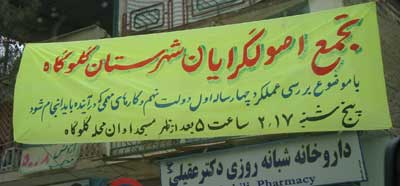 تجمع اصولگرایان شهرستان گلوگاه
با موضوع بررسی عملکرد چهار ساله اول دولت نهم و کارهای که در آینده باید انجام شود
پنج شنبه ۲.۱۷ ساعت ۵ بعد از ظهر مسجد محله گلوگاه
داروخانه شبانه روزی دکتر عقیلی
Pharmacy